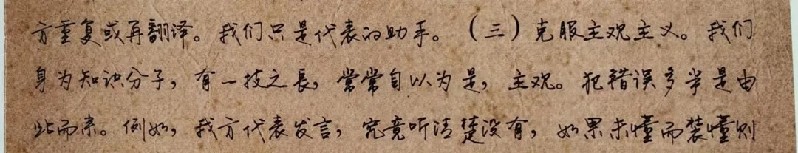 方重复或再翻译。我们只是代表的助手。(三)克服主观主义。我们
身为知识分子,有一技之長,常常自以为是,主观。犯错误多半是由
此而来。例如,我方代表发言,究竟听清楚没有,如果未懂而装懂则